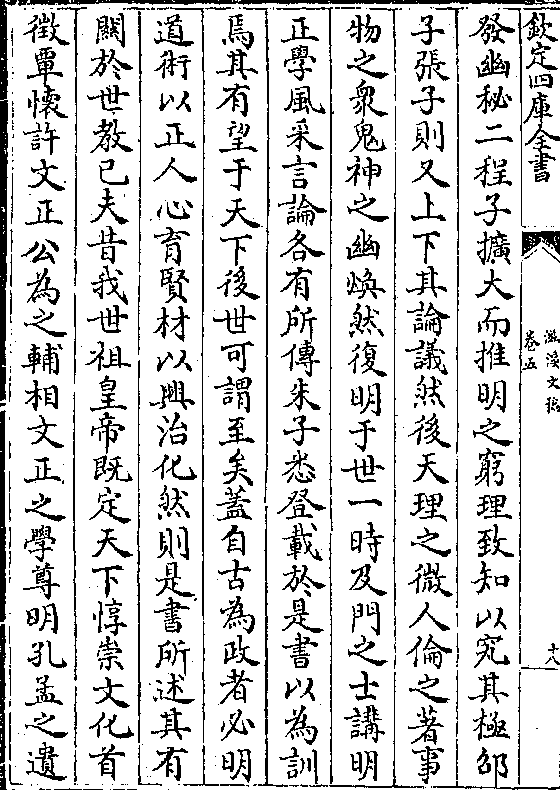 欽定四庫全書
滋溪文稿
卷五
十八
發幽秘二程子擴大而推明之窮理致知以究其極邵
子張子則又上下其論議然後天理之微人倫之著事
物之衆鬼神之幽煥然復明于世一時及門之士講明
正學風采言論各有所傳朱子悉登載於是書以為訓
焉其有望于天下後世可謂至矣蓋自古為政者必明
道術以正人心育賢材以興治化然則是書所述其有
關於世教已夫昔我世祖皇帝既定天下惇崇文化首
徵覃懷許文正公為之輔相文正之學尊明孔孟之遺